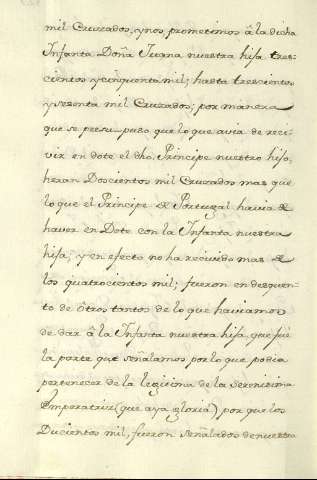 mil Cruzados, y nos prometimos â la dicha
Infanta Doña Juana nuestra hija tres-
cientos y cinquenta mil; hasta trescientos
y sesenta mil Cruzados; por manera
que se presu-puso que lo que avia de reci-
vir en dote el dho. Principe nuestro hijo,
heran Doscientos mil Cruzados mas que
lo que el Principe de Portugal havia de
haver en Dote con la Infanta nuestra
hija; y en efecto no ha recivido mas de
los quatrocientos mil; fueron en desquen-
to de ôtros tantos de lo que haviamos
de dar â la Infanta nuestra hija, que fué
la parte que señalamos por lo que podia
pertenecer de la legitima de la Serenisima
Imperatriz (que aya gloria) por que los
Ducientos mil, fueron señalados de nuestra